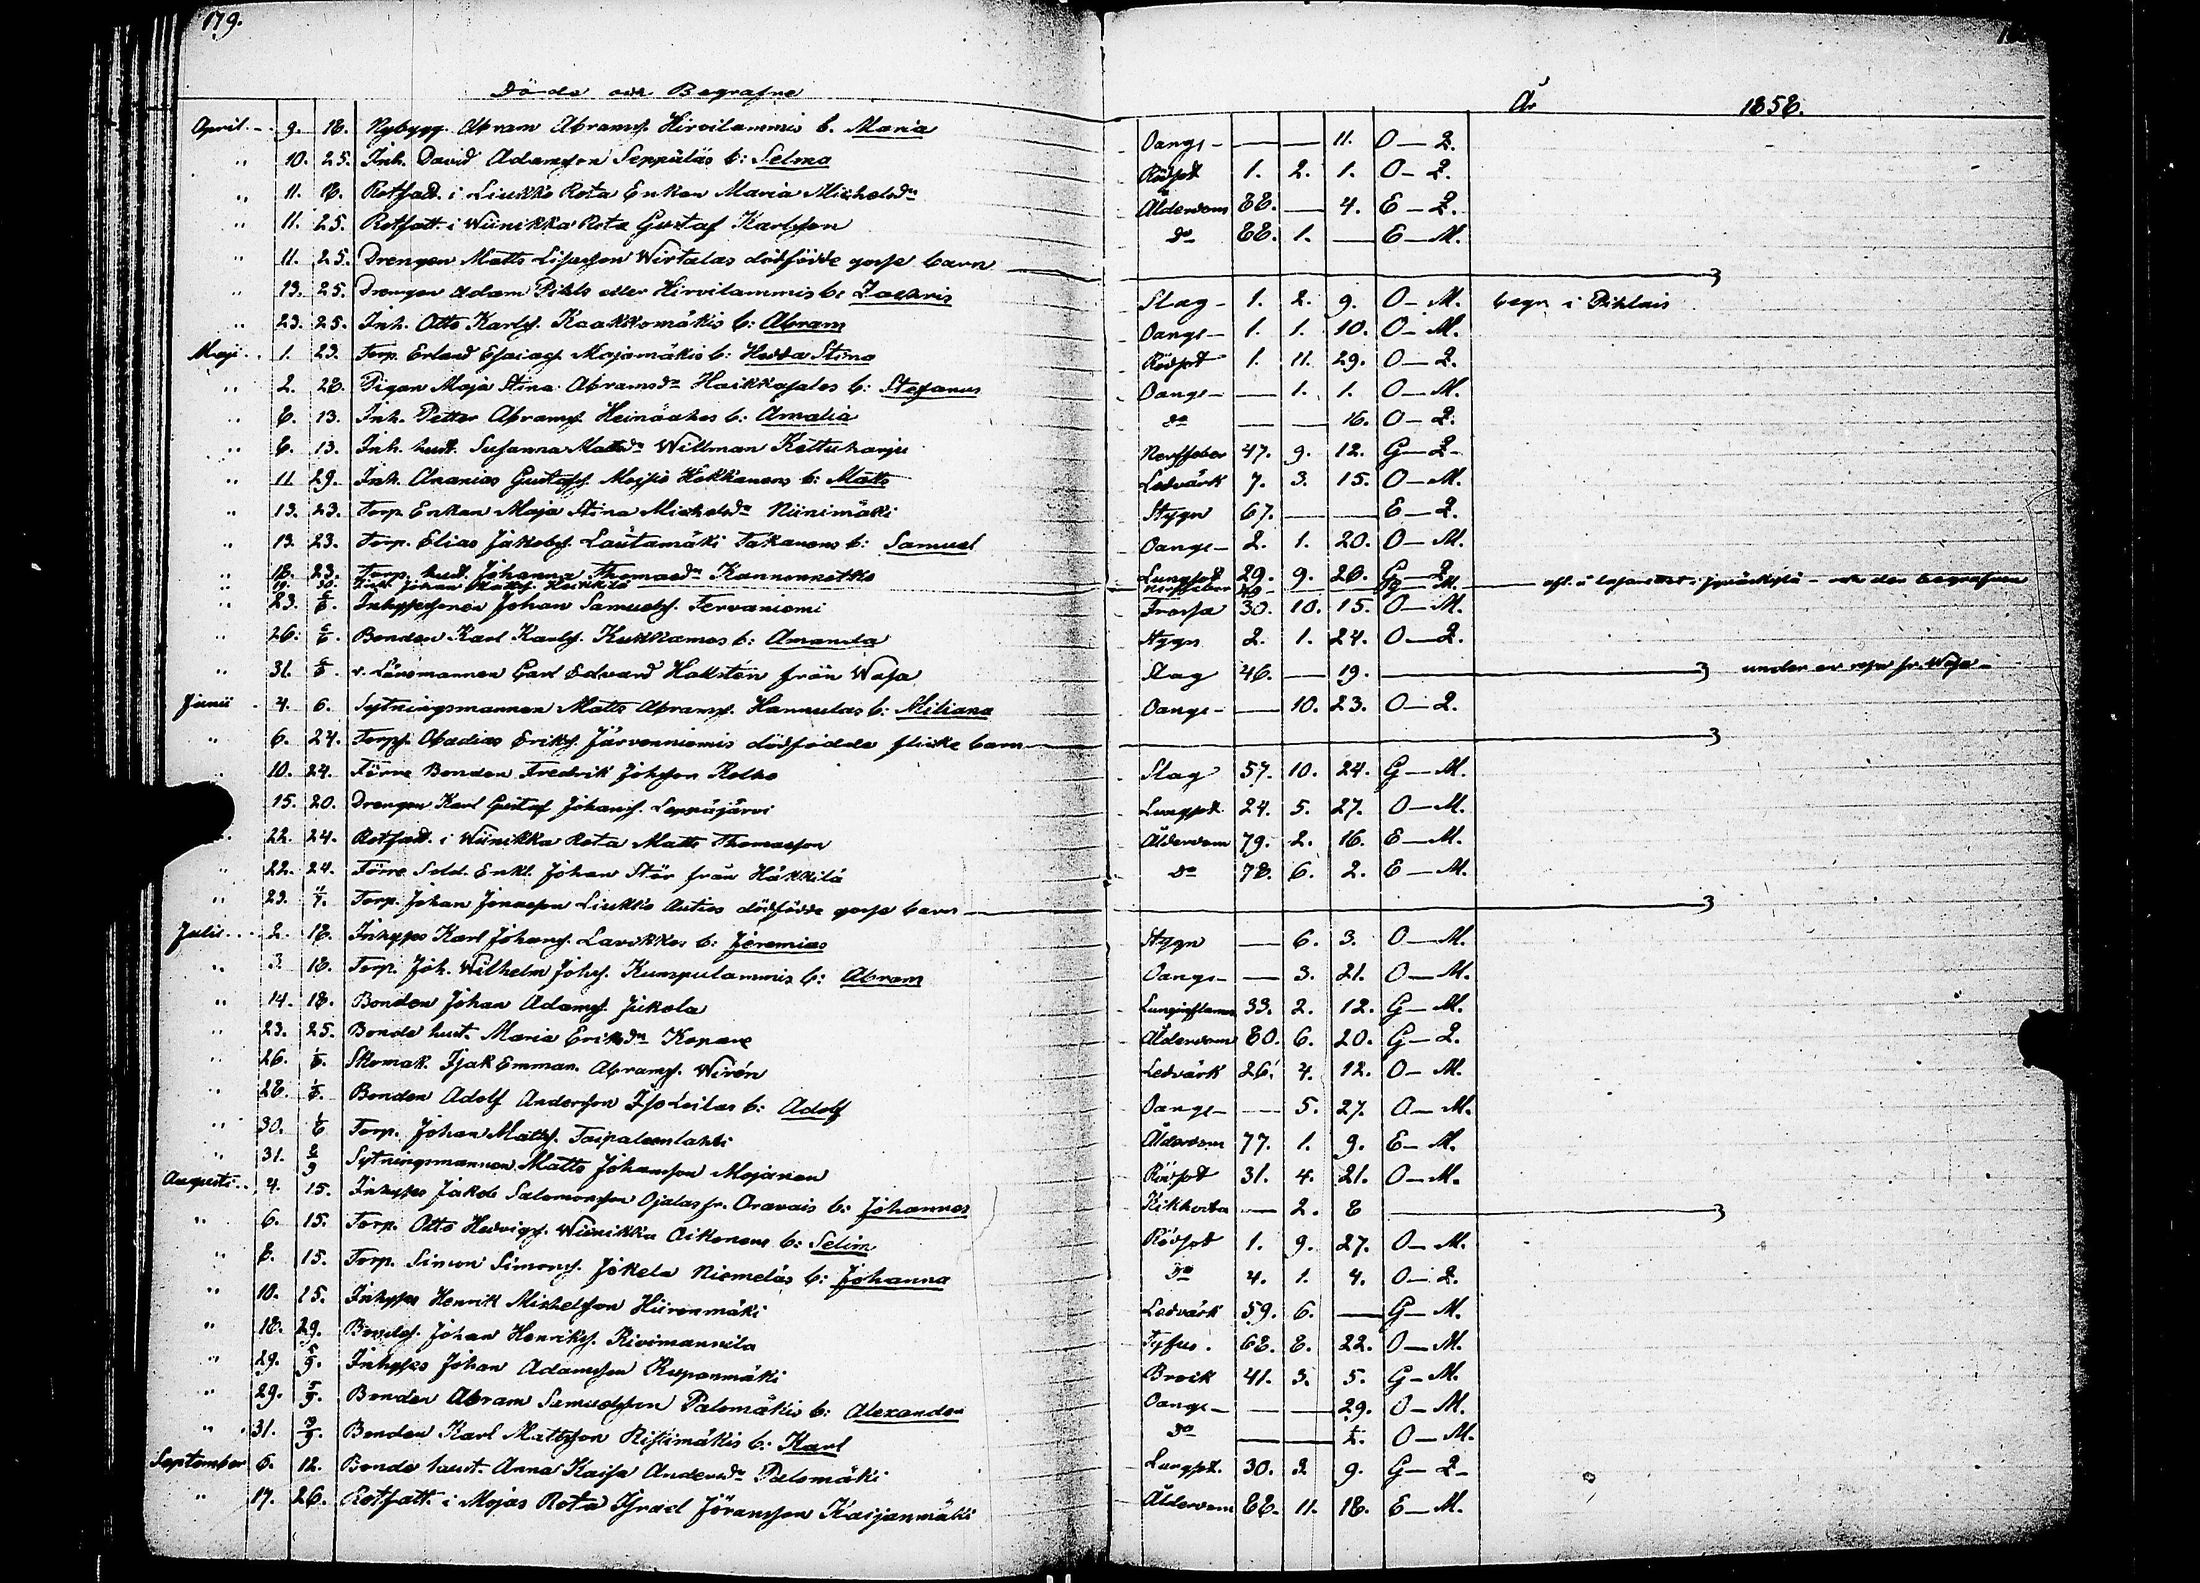 179.
Döde och Begrafne År 1858.
April 9. 18. Nybygg. Abram Abramss. Hirvilammis b. Maria Oangif. — — 11. O — Q.
" 10. 25. Inh. David Adamsson Seppäläs b: Selma Rödsot 1. 2. 1. O — Q.
" 11. 18. Rotfatt. i Liukko Rota Enkan Maria Michelsdr Ålderdom 88. — 4. E — Q.
" 11. 25. Rotfatt. i Wiinikka Rota Gustaf Karlsson do 88. 1. — E — M.
" 11. 25. Drengen Matts Lisasson Wirtalas dödfödde gosse barn
" 13. 25. Drengen Adam Pihls eller Hirvilammis b: Zachris Slag 1. 2. 9. O — M. begr. i Pihlais
" 23. 25. Inh. Otto Karlss. Kaakkomäkis b: Abram Oangif. 1. 1. 10. O — M.
Maji 1. 23. Torp. Erland Esaiass. Majamäkis b: Hedda Stina Rödsot 1. 11. 29. O — Q.
" 2. 28. Pigan Maja Stina Abramsdr Haikkasalos b: Stefanus Oangif. — 1. 1. O — M.
" 8. 13. Inh. Petter Abramss. Heinäahos b: Amalia do — — 16. O — Q.
" 8. 13. Inh. hust. Susanna Mattsdr Willman Kettuharju Nerffeber 47. 9. 12. G — Q.
" 11 29. Inh. Ananias Gustafss. Hokkanens b: Matts Ledvärk 7. 3. 15. O — M.
" 13. 23. Torp. Enkan Maja Stina Michelsdr Niinimäki Stygn 67. — — E — Q.
" 13. 23. Torp. Elias Jakobss. Lautamäki Takanens b: Samuel Oangif. 2. 1. 20. O — M.
" 18. 23. Torp. hust. Johanna Thomasdr Kannonketko Lungsot 29. 9. 26. G — Q.
" 19. 30. Inh. Johan Mattss. Heikkilä Nerffeber afl. å lasarettet i Jyväskylä — och der begrafven
" 23. 6/6. Inhysessonen Johan Samuelss. Tervaniemi Frossa 30. 10. 15. O — M.
" 26. 6/6. Bonden Karl Karlss. Kukkamos b: Amanda Stygn 2. 1. 24. O — Q.
" 31. 6/6. v. Länsmannen Carl Edvard Hallstén från Wasa Slag 46. — 19. under en resa fr. Wasa
Junii 4. 6. Sytningsmannen Matts Abramss. Hannulas b: Miliana Oangif. — 10. 23. O — Q.
" 6. 24. Torps. Abadias Erikss. Järvenniemis dödfödda flicke barn
" 10. 24. Förre Bonden Fredrik Johsson Kolho Slag 57. 10. 24. G — M.
" 15. 20. Drengen Karl Gustaf Johanss. Leppäjärvi Lungsot 24. 5. 27. O — M.
" 22. 24. Rotfatt. i Wiinikka Rota Matts Thomasson Ålderdom 79. 2. 16. E — M.
" 22. 24. Förre Sold. Enkl. Johan Stör från Häkkilä do 78. 6. 2. E — M.
" 23. 4/7. Torp. Johan Jonasson Liukko Auties dödfödde gosse barn
Julii 2. 18. Inhyses Karl Johanss. Lavikkos b: Jeremias Stygn — 6. 3. O — M.
" 3. 18. Torp. Joh. Wilhelm Johss. Kumpulammis b: Abram Oangif. — 3. 21. O — M.
" 14. 18. Bonden Johan Adamss. Jukola Lunginflamm. 33. 2. 12. G — M.
" 23. 25. Bonde hust. Maria Eriksdr Kopare Ålderdom 80. 6. 20. G — Q.
" 26. 1/8. Skomak. Isak Emman. Abramss. Wirén Ledvärk 26. 4. 12. O — M.
" 28. 1/8. Bonden Adolf Andersson Isoleilas b: Adolf Oangif. — 5. 27. O — M.
" 30. 1/8 Torp. Johan Mattss. Taipaleenlahti Ålderdom 77. 1. 9. E — M.
" 31. 2/9 Sytningsmannen Matts Johansson Mojanen Rödsot 31. 4. 21. O — M.
Augusti 4. 15. Inhyses Jakob Salomonsson Ojalas fr. Oravais b: Johannes Kikhosta — 2. 8
" 6. 15. Torp. Otto Hedvigss. Wiinikka Oikonens b: Selim Rödsot 1. 9. 27. O — M.
" 8. 15. Torp. Simon Simonss. Jokela Niemeläs b: Johanna do 4. 1. 4. O — Q.
" 10. 15. Inhyses Henrik Michelsson Hiironmäki Ledvärk 59. 6. — G — M.
" 18. 29. Bondes. Johan Henrikss. Kivimannila Tyfus. 68. 8. 22. O — M.
" 29. 5/9. Inhyses Johan Adamsson Ruponmäki Brock 41. 3. 5. G — M.
" 29. 5/9. Bonden Abram Samuelsson Palomäkis b: Alexander Oangif. — — 29. O — M.
" 31. Bonden Karl Mattsson Ristimäkis b: Karl do — — ½. O — M.
September 6. 12. Bonde hust. Anna Kaisa Andersdr Palomäki Lungsot. 30. 2 9. G — Q.
" 17. 26. Rotfatt. i Mojas Rota Israel Göransson Kaijanmäki Ålderdom 88. 11. 18. E — M.